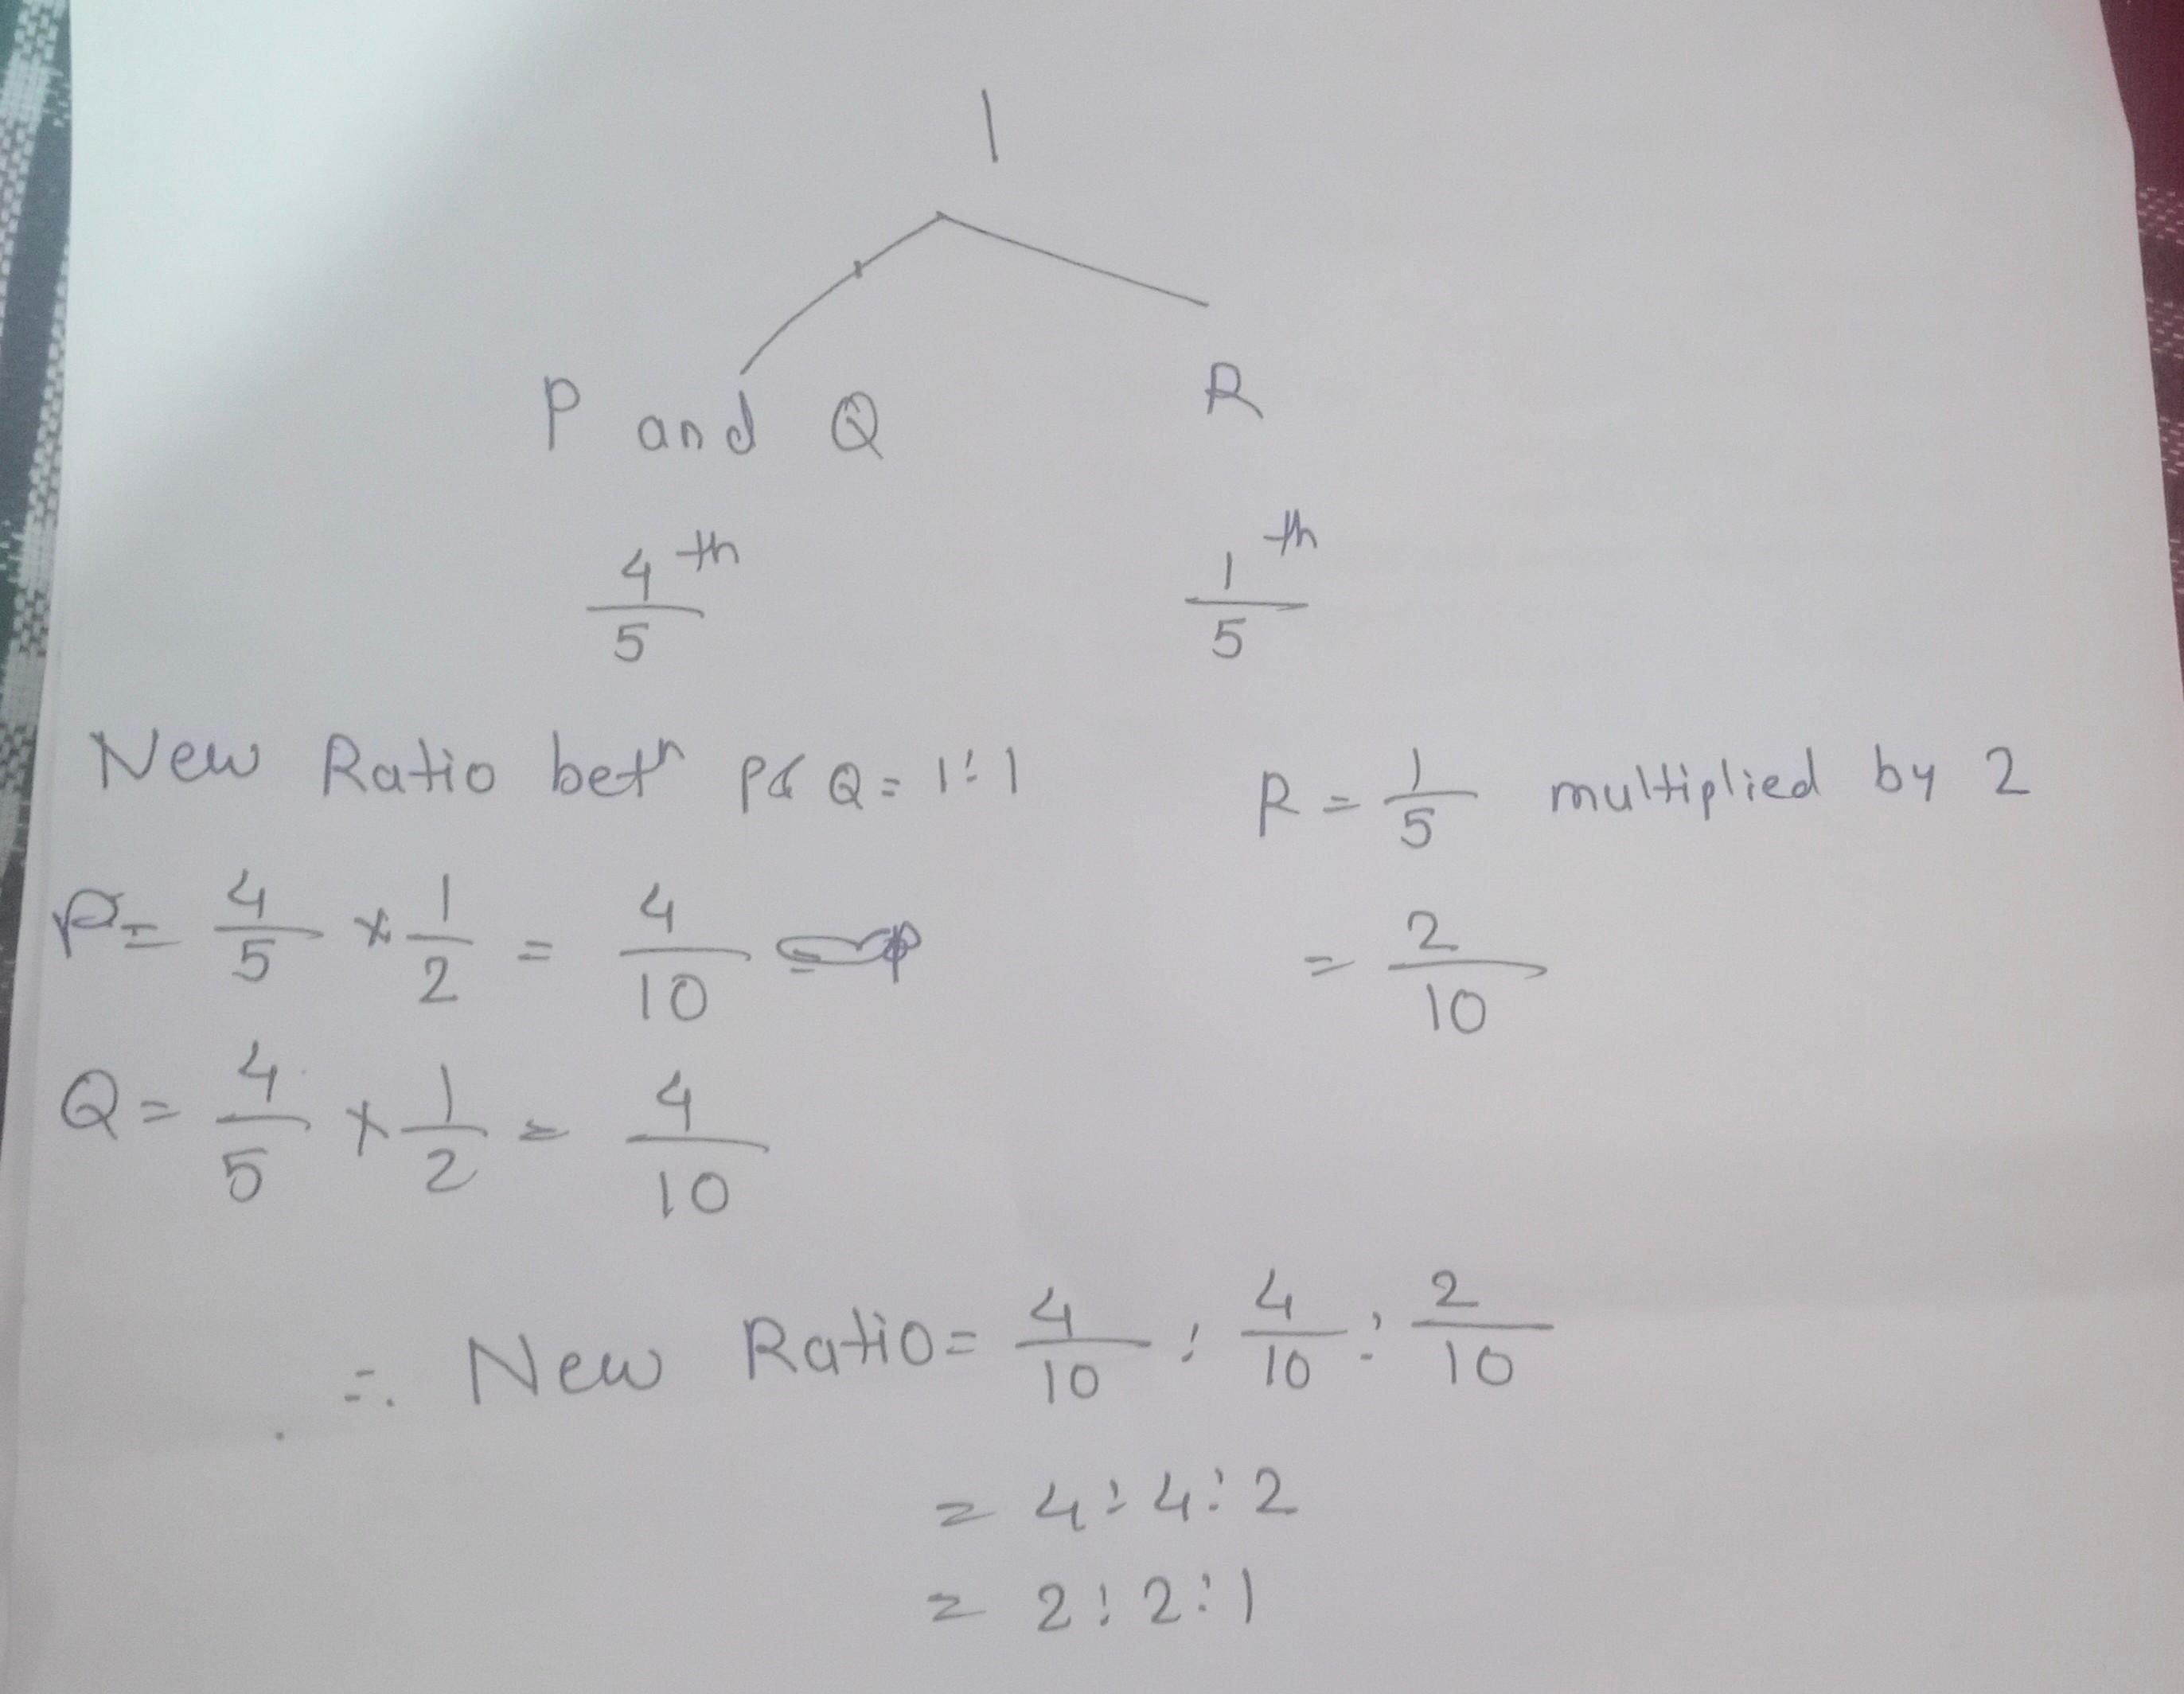 1
P and Q R
4/5 th 1/5 th
New Ratio betn P & Q = 1:1 R = 1/5 multiplied by 2
P = 4/5 × 1/2 = 4/10 = 2/10
Q = 4/5 × 1/2 = 4/10
∴ New Ratio = 4/10 : 4/10 : 2/10
= 4:4:2
= 2:2:1